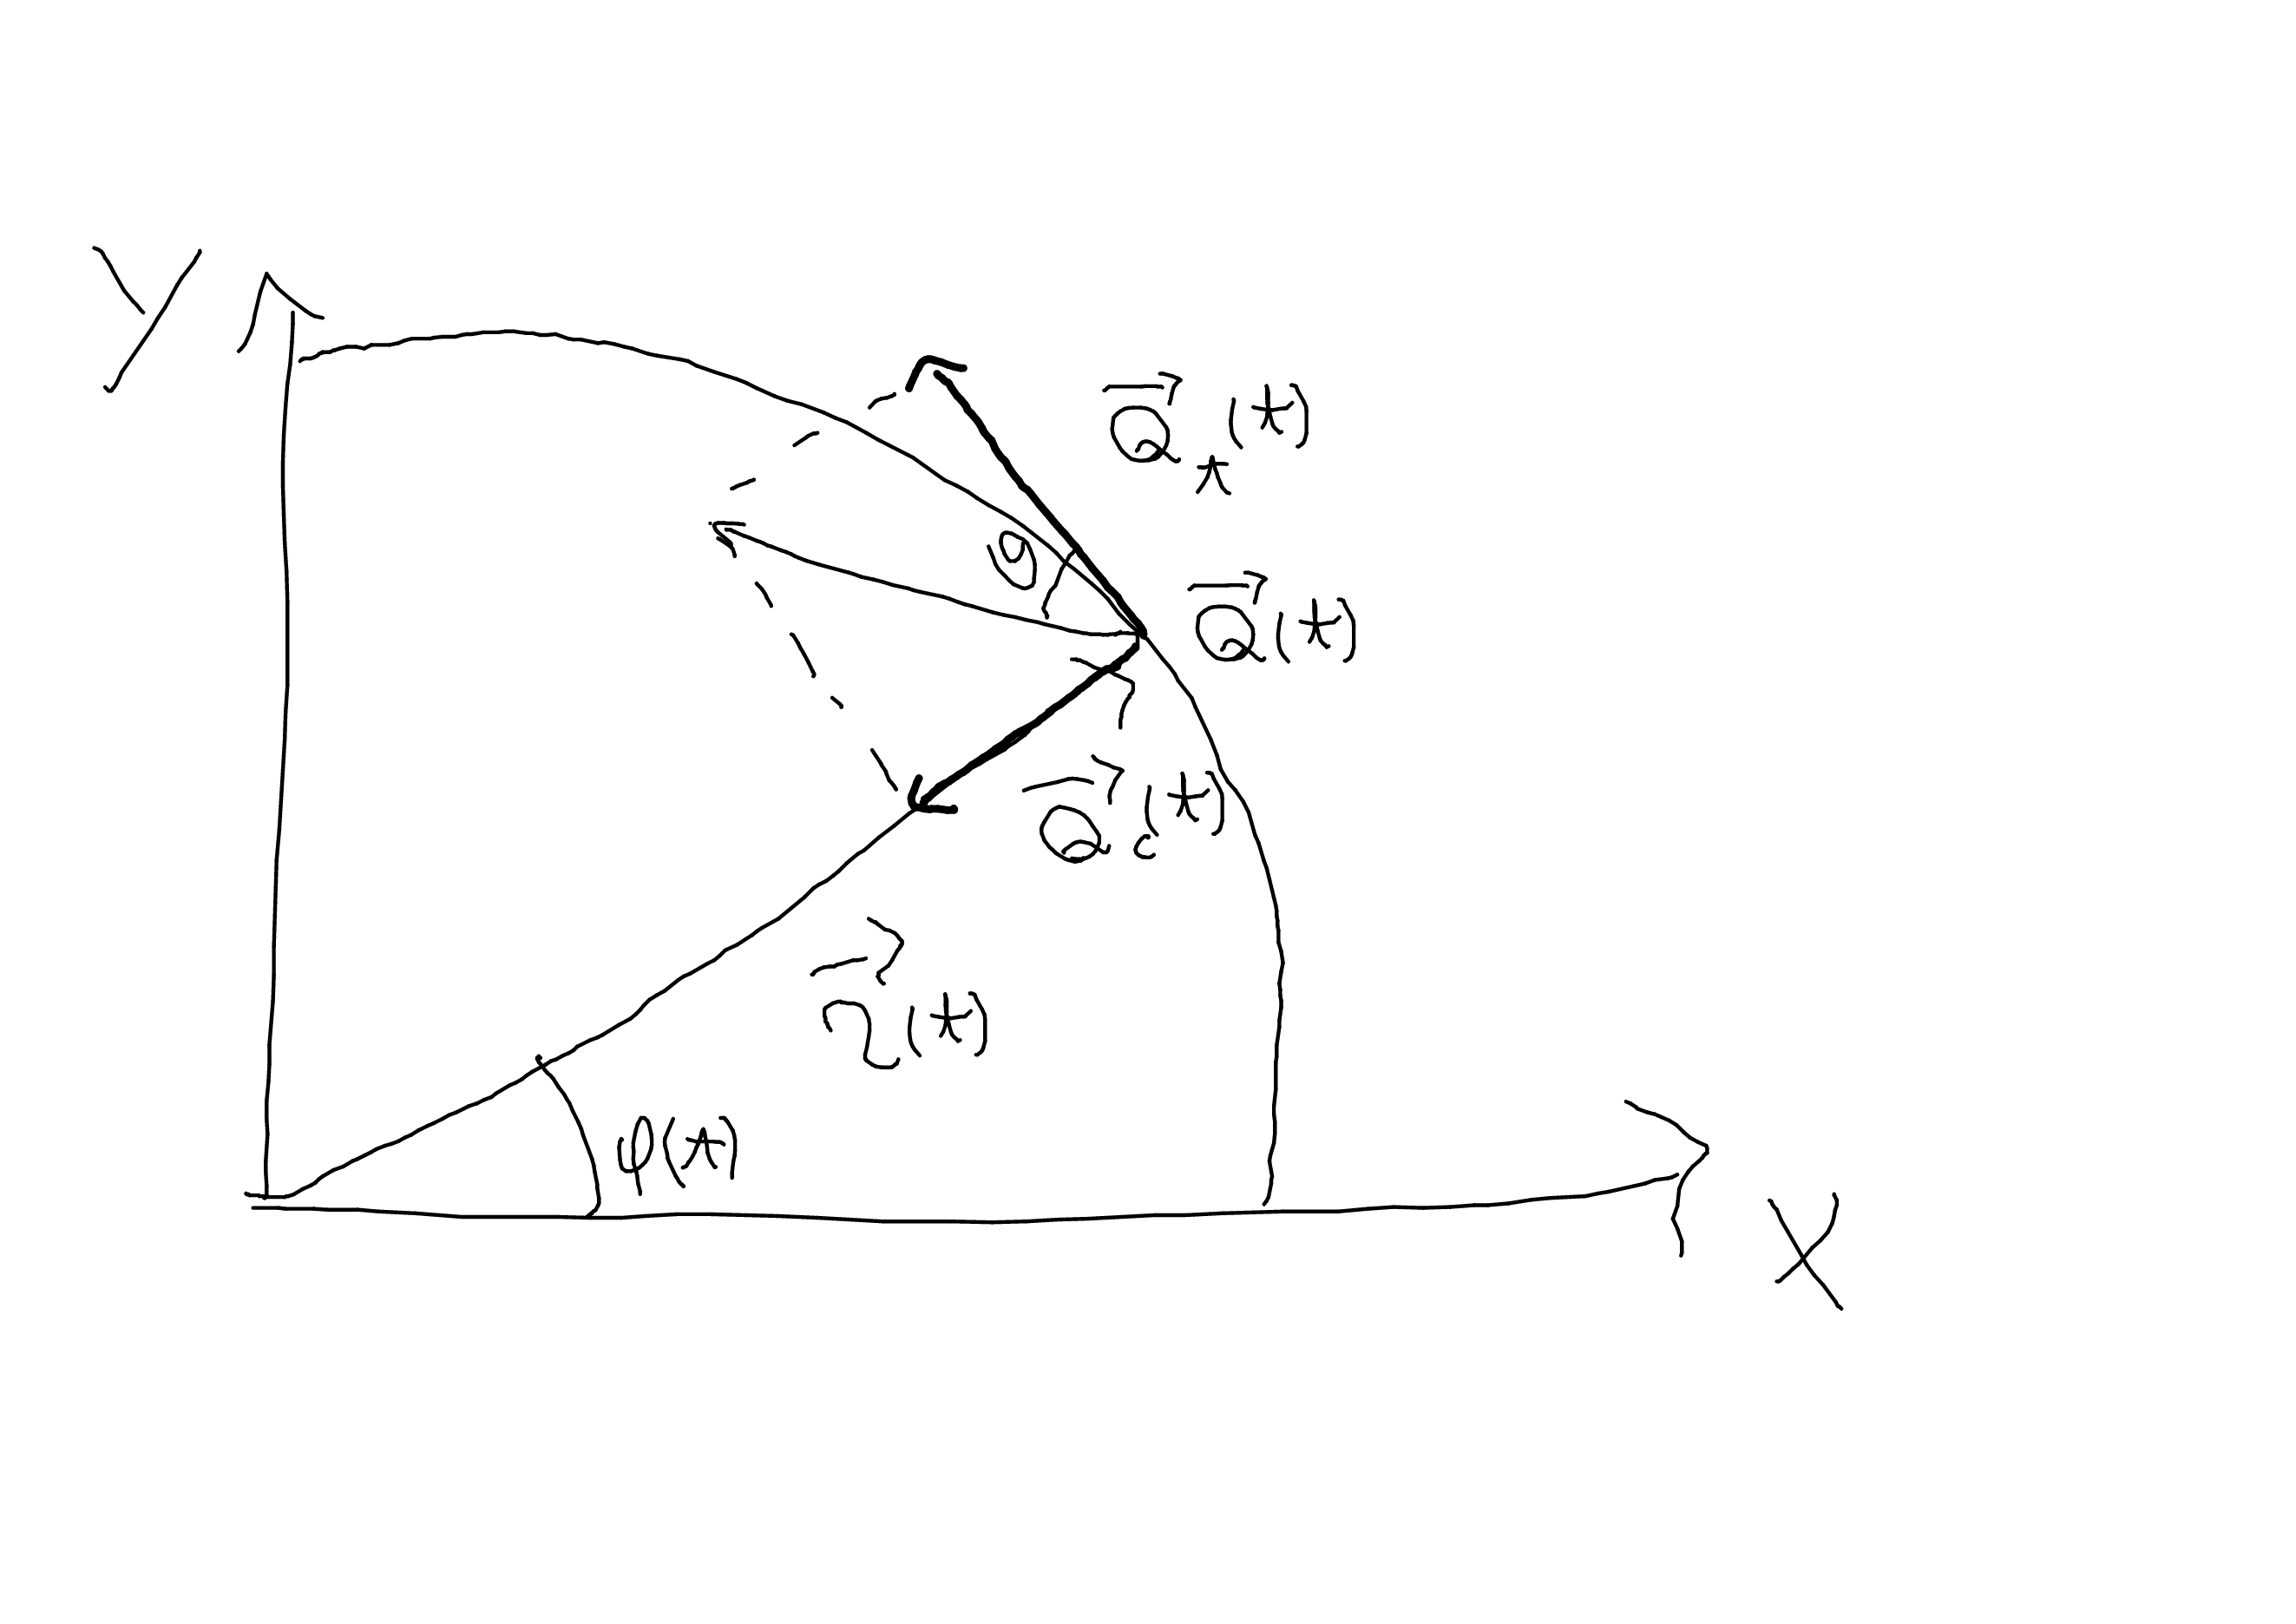 Y
a⃗ₜ(t)
θ
a⃗(t)
a⃗c(t)
r⃗(t)
φ(t)
X